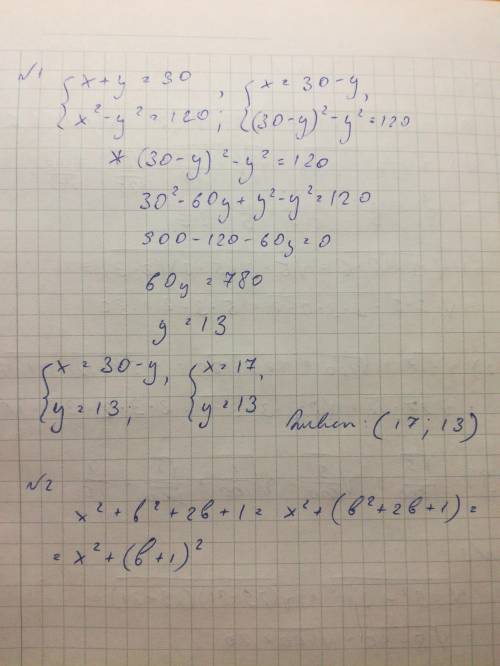 №1 { x + y = 30, x² - y² = 120; { x = 30 - y, (30 - y)² - y² = 120
* (30 - y)² - y² = 120
30² - 60y + y² - y² = 120
900 - 120 - 60y = 0
60y = 780
y = 13
{ x = 30 - y, y = 13; { x = 17, y = 13 Ответ: (17; 13)
№2
x² + b² + 2b + 1 = x² + (b² + 2b + 1) =
= x² + (b + 1)²